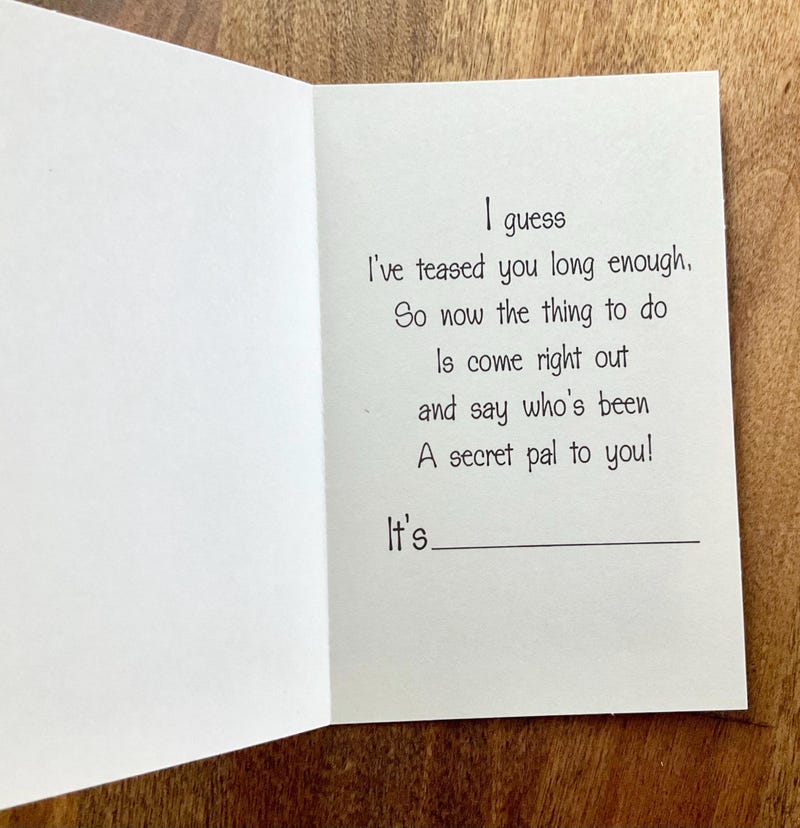 I guess
I've teased you long enough,
So now the thing to do
Is come right out
and say who's been
A secret pal to you!
It's